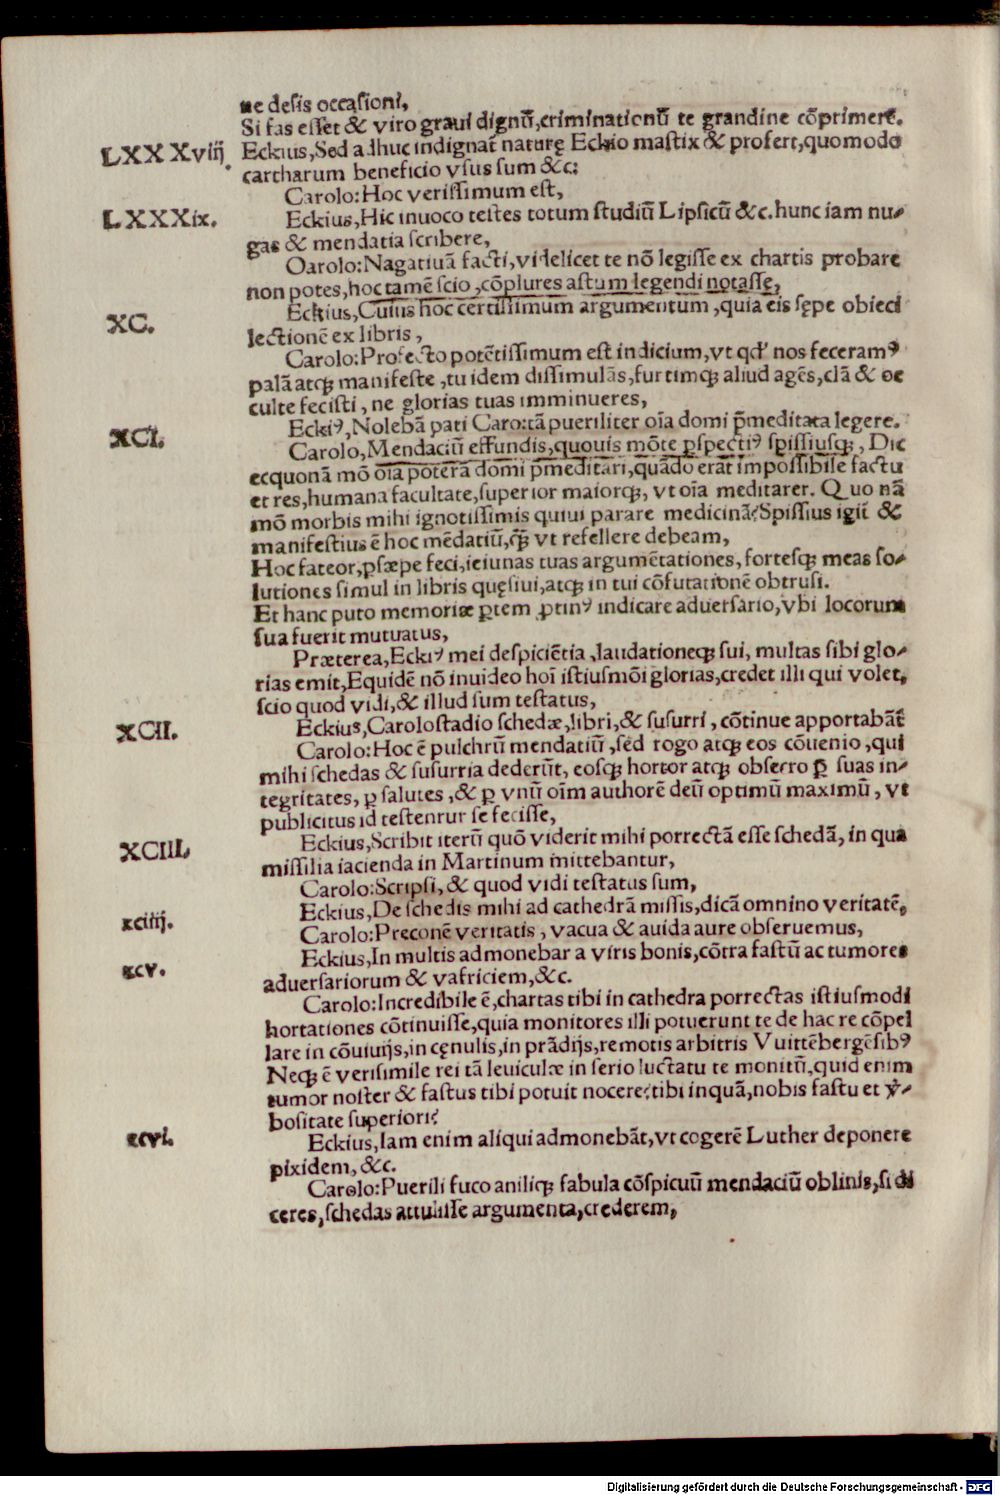 ne desis occasioni,
Si fas esset & viro graui dignū, criminationū te grandine cōprimerē.
LXXXviij. Eckius, Sed adhuc indignat̄ naturę Eckio mastix & profert, quomodo
cartharum beneficio vsus sum &c:
Carolo: Hoc verissimum est,
LXXXix. Eckius, Hic inuoco testes totum studiū Lipsicū &c. hunc iam nu-
gas & mendatia scribere,
Oarolo: Nagatiuā facti, videlicet te nō legisse ex chartis probare
non potes, hoc tamē scio, cōplures astum legendi notasse,
XC. Eckius, Cuius hoc certissimum argumentum, quia eis sępe obieci
lectionē ex libris,
Carolo: Profecto potētissimum est indicium, vt qd' nos feceramꝰ
palā atqꝫ manifeste, tu idem dissimulās, furtimqꝫ aliud agēs, clā & oc
culte fecisti, ne glorias tuas imminueres,
XCI. Eckiꝰ, Nolebā pati Caro: tā pueriliter oīa domi p̄meditata legere.
Carolo, Mendaciū effundis, quouis mōte ꝑspectiꝰ spissiusqꝫ, Dic
ecquonā mō oīa poterā domi p̄meditari, quādo erat impossibile factu
et res, humana facultate, superior maiorqꝫ, vt oīa meditarer. Quo nā
mō morbis mihi ignotissimis quiui parare medicinā? Spissius igit̄ &
manifestius ē hoc mēdatiū, q̄ꝫ vt refellere debeam,
Hoc fateor, ꝓsæpe feci, ieiunas tuas argumētationes, fortesqꝫ meas so-
lutiones simul in libris quęsiui, atqꝫ in tui cōfutationē obtrusi.
Et hanc puto memoriæ ꝑtem ꝓtinꝰ indicare aduersario, vbi locorum
sua fuerit mutuatus,
Præterea, Eckiꝰ mei despiciētia, laudationeqꝫ sui, multas sibi glo-
rias emit, Equidē nō inuideo hoī istiusmōi glorias, credet illi qui volet,
scio quod vidi, & illud sum testatus,
XCII. Eckius, Carolostadio schedæ, libri, & susurri, cōtinue apportabāt̄
Carolo: Hoc ē pulchrū mendatiū, sed rogo atqꝫ eos cōuenio, qui
mihi schedas & susurria dederūt, eosqꝫ hortor atqꝫ obsecro ꝑ suas in-
tegritates, ꝑ salutes, & ꝑ vnū oīm authorē deū optimū maximū, vt
publicitus id testentur se fecisse,
XCIII. Eckius, Scribit iterū quō viderit mihi porrectā esse schedā, in qua
missilia iacienda in Martinum mittebantur,
Carolo: Scripsi, & quod vidi testatus sum,
xciiij. Eckius, De schedis mihi ad cathedrā missis, dicā omnino veritatē,
Carolo: Preconē veritatis, vacua & auida aure obseruemus,
xcv. Eckius, In multis admonebar a viris bonis, cōtra fastū ac tumores
aduersariorum & vafriciem, &c.
Carolo: Incredibile ē, chartas tibi in cathedra porrectas istiusmodi
hortationes cōtinuisse, quia monitores illi potuerunt te de hac re cōpel
lare in cōuiuijs, in cęnulis, in prādijs, remotis arbitris Vuittēbergēsibꝰ
Neqꝫ ē verisimile rei tā leuiculæ in serio luctatu te monitū, quid enim
tumor noster & fastus tibi potuit nocere? tibi inquā, nobis fastu et v̄-
bositate superiori?
xcvi. Eckius, Iam enim aliqui admonebāt, vt cogerē Luther deponere
pixidem, &c.
Carolo: Puerili fuco aniliqꝫ fabula cōspicuū mendaciū oblinis, si di
ceres, schedas attulisse argumenta, crederem,
Digitalisierung gefördert durch die Deutsche Forschungsgemeinschaft - DFG